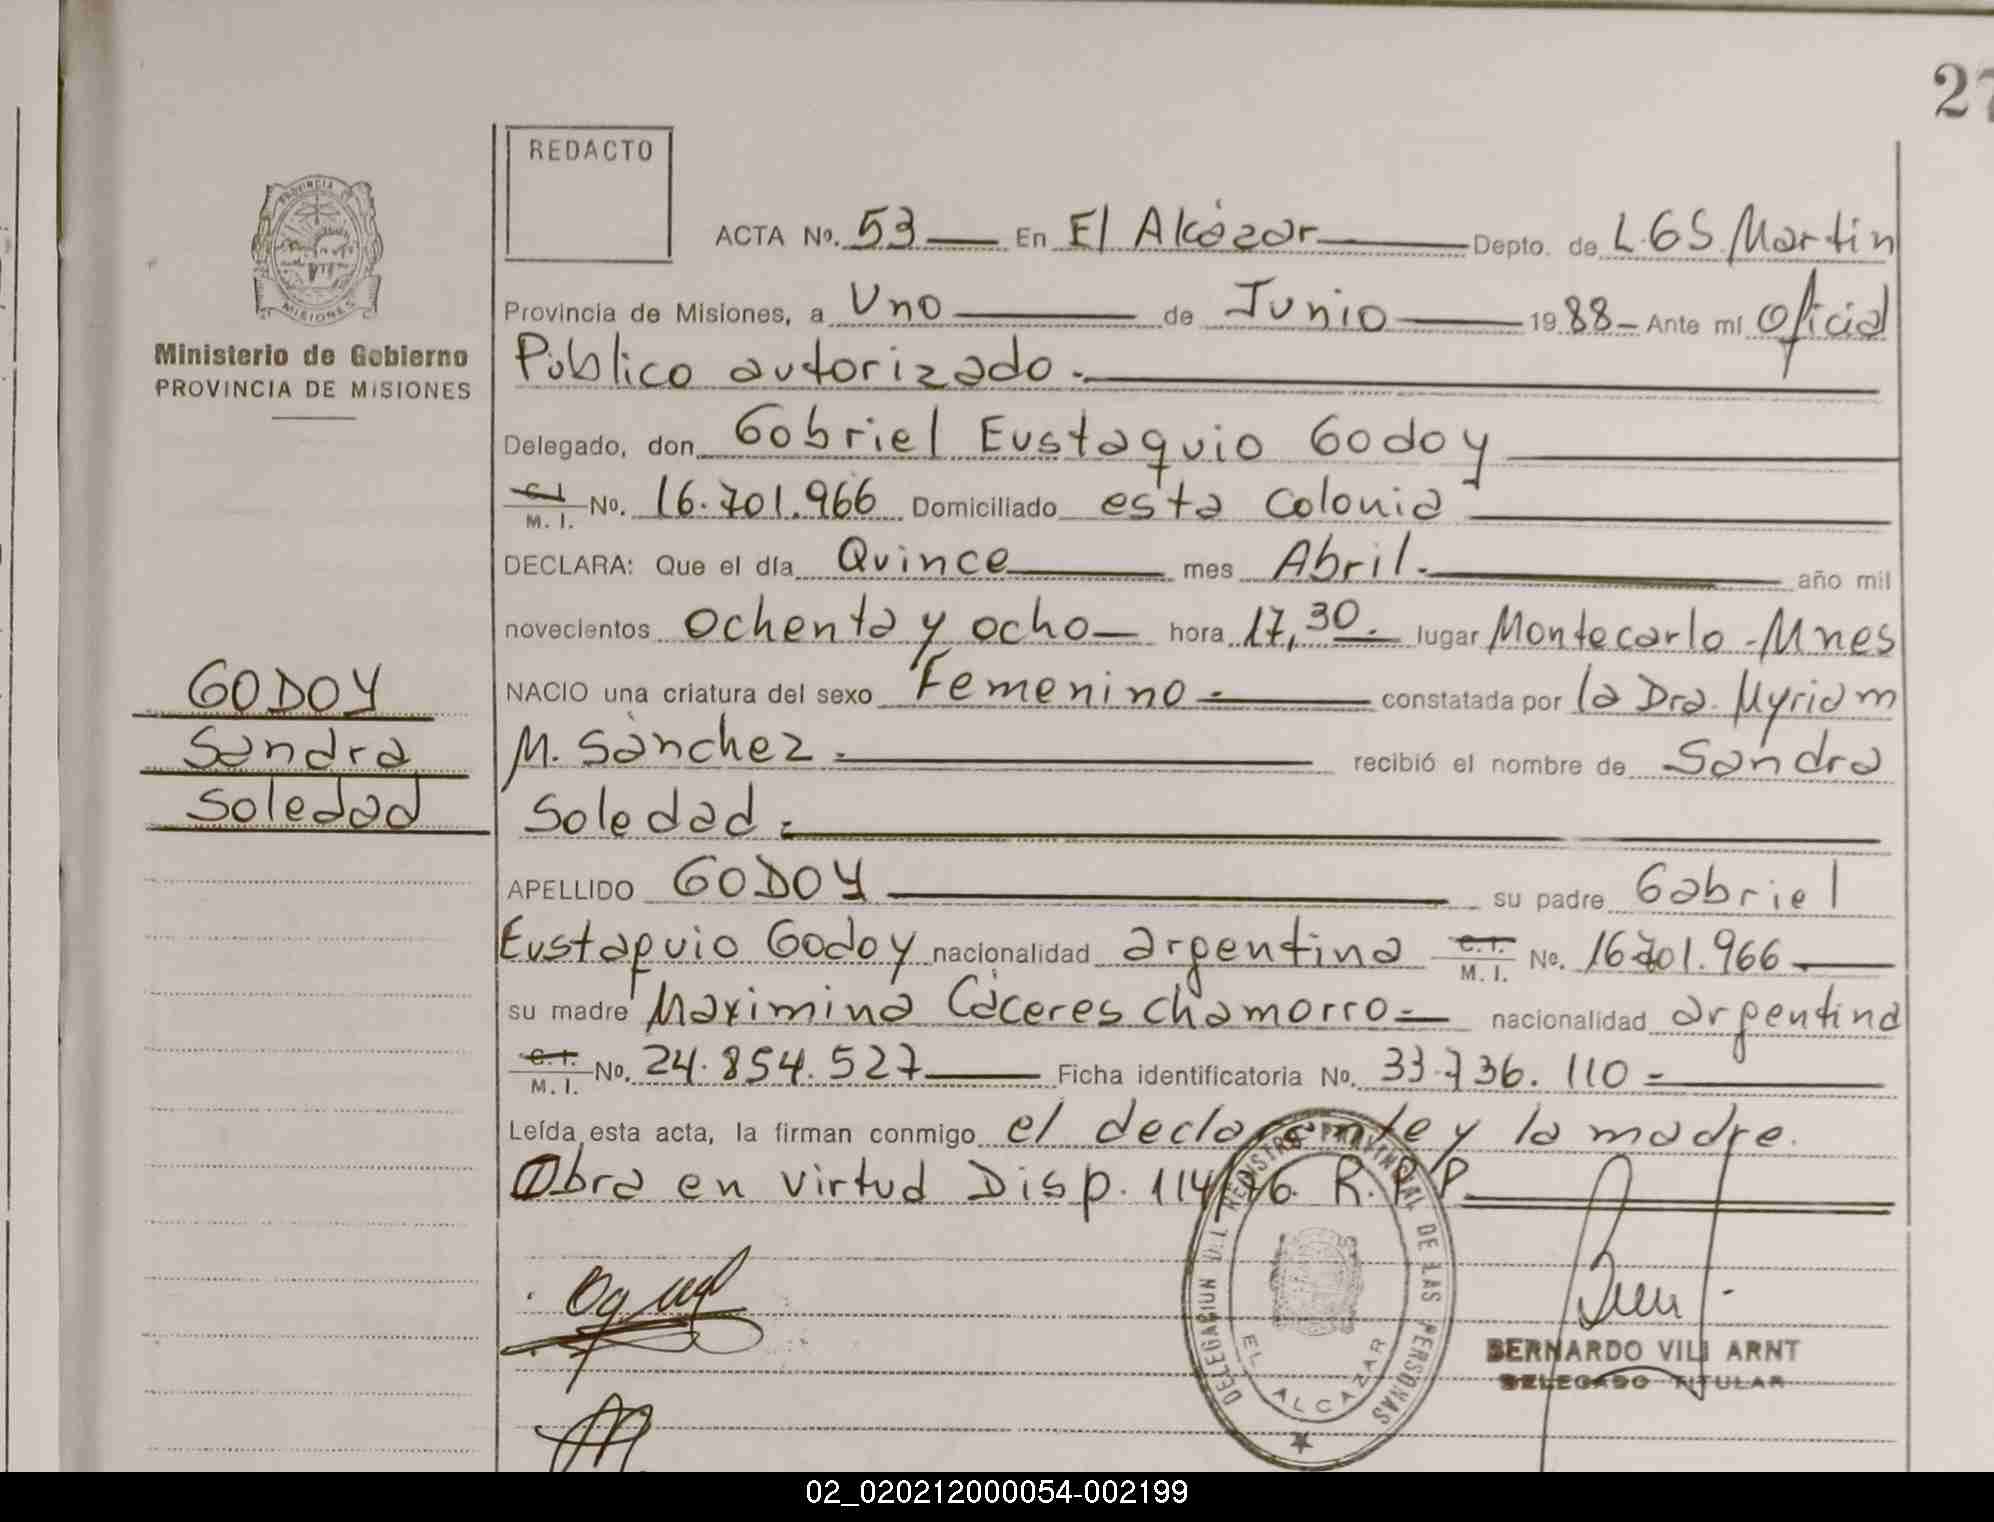 27
REDACTO
PROVINCIA
MISIONES
Ministerio de Gobierno
PROVINCIA DE MISIONES
ACTA Nº. 53 En El Alcázar Depto. de L.GS.Martin
Provincia de Misiones, a Uno de Junio 1988 Ante mí Oficial
Público autorizado.
Delegado, don Gabriel Eustaquio Godoy
C.I. M. I. Nº. 16.701.966 Domiciliado esta Colonia
DECLARA: Que el día Quince mes Abril. año mil
novecientos ochenta y ocho hora 17,30. lugar Montecarlo-Mnes
NACIO una criatura del sexo Femenino constatada por la Dra. Myriam
M. Sánchez recibió el nombre de Sandra
Soledad
APELLIDO GODOY su padre Gabriel
Eustaquio Godoy nacionalidad argentina C.I. M. I. Nº. 16.701.966
su madre Maximina Cáceres Chamorro nacionalidad argentina
C.I. M. I. Nº. 24.854.527 Ficha identificatoria Nº. 33.736.110
Leída esta acta, la firman conmigo el declarante y la madre.
Obra en virtud Disp. 114/76. R.P.P.
GODOY
Sandra
Soledad
DELEGACION DEL REGISTRO PROVINCIAL DE LAS PERSONAS
EL ALCAZAR
BERNARDO VILI ARNT
DELEGADO TITULAR
02_020212000054-002199